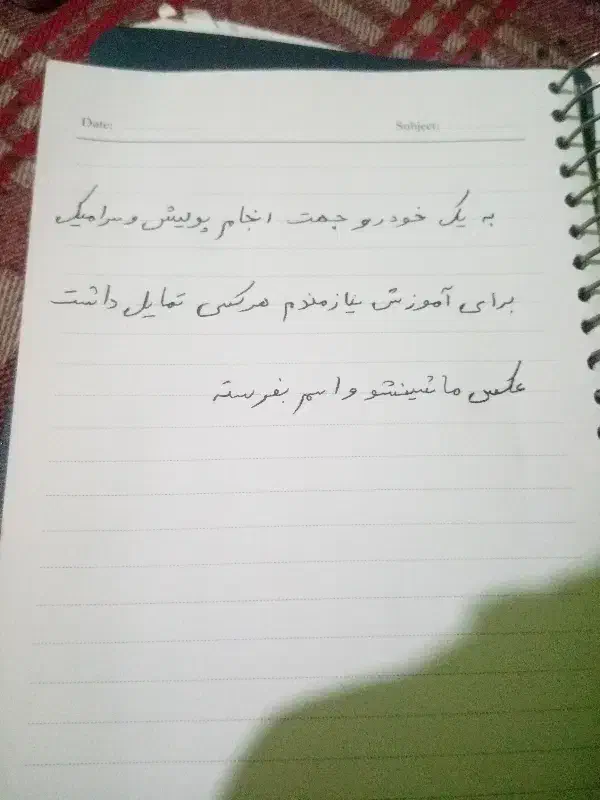 Date:
Subject:
به یک خودرو جهت انجام پولیش و سرامیک
برای آموزش نیازمندم هرکسی تمایل داشت
عکس ماشینشو واسم بفرسته